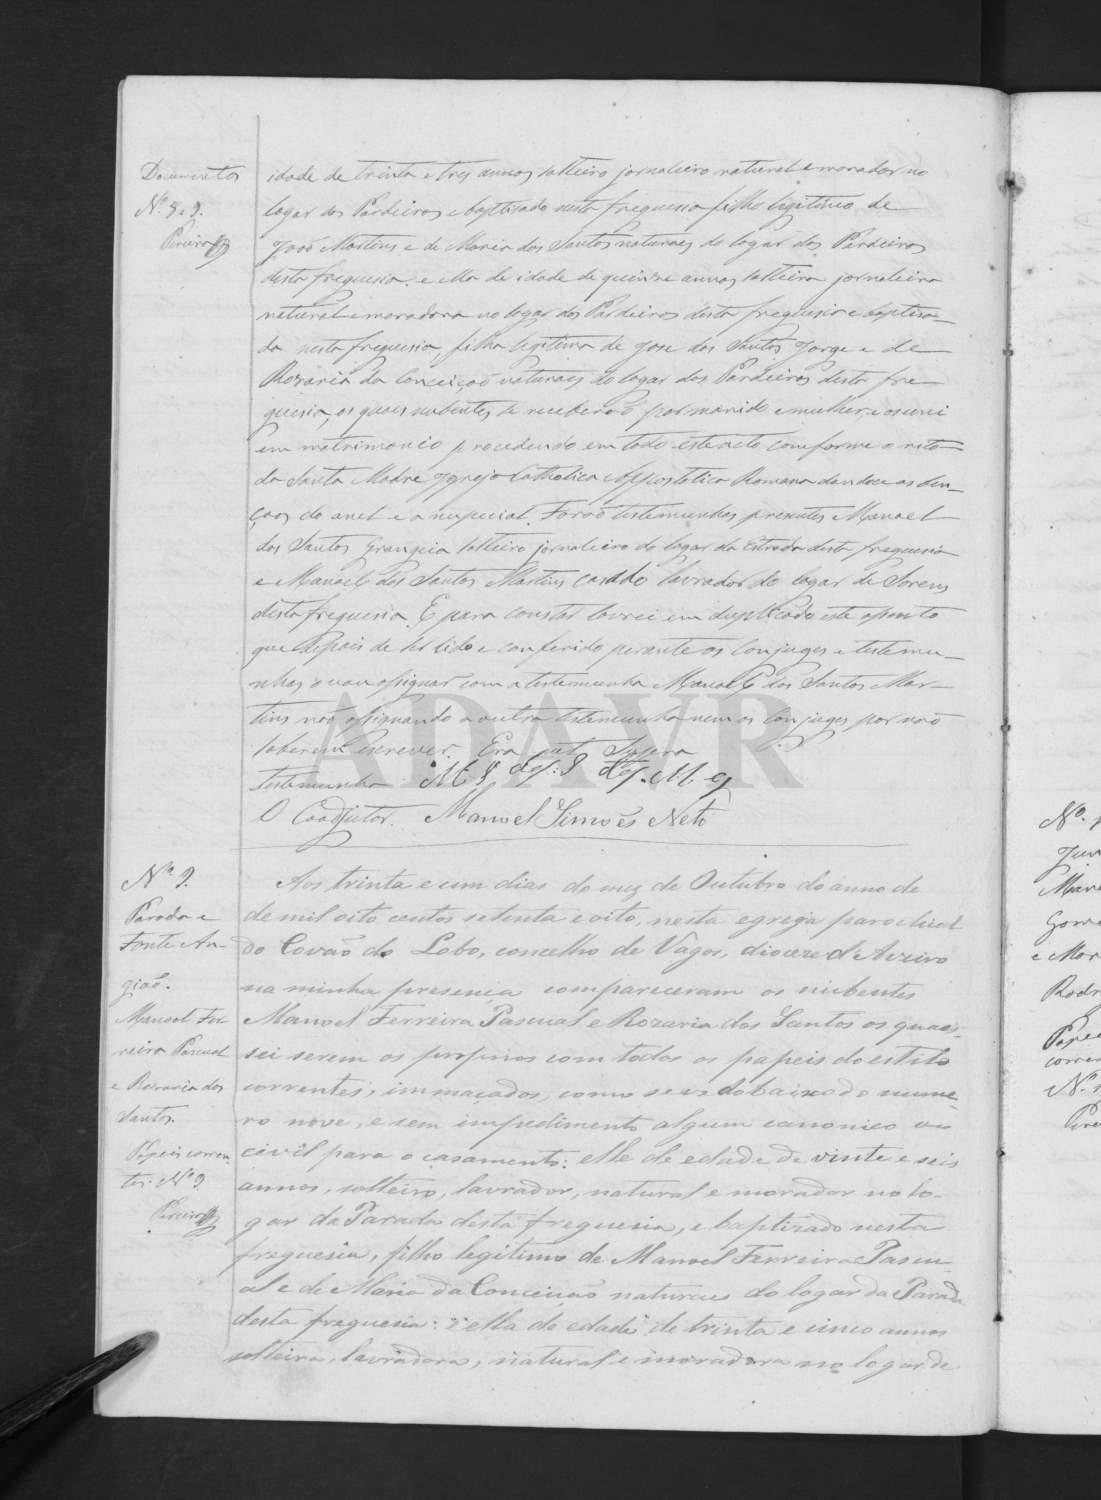 Documentos
Nos 8 e 9.
Pereira
idade de trinta e tres annos solteiro jornaleiro natural e morador no
logar dos Pardieiros e baptisado nesta freguesia filho legitimo de
João Martins e de Maria dos Santos naturaes do logar dos Pardeiros
desta freguesia. e ella de idade de quinze annos solteira jornaleira
natural e moradora no logar dos Pardeiros desta freguesia e baptisa-
da nesta freguesia, filha legitima de Jose dos Santos Jorge e de
Rozaria da Conceição naturaes do logar dos Pardieiros desta fre-
guesia, os quaes nubentes se receberão por marido e mulher, e os uni
em matrimonio procedendo em todo este acto comforme o rito
da Santa Madre Igreja Catholica Apostolica Romana dandoce as ben-
çaos do anel e a nupecial. Forão testemunhas presentes Manoel
dos Santos solteiro jornaleiro do logar da Estrada desta freguesia
e Manoel dos Santos Martins casado lavrador do logar de
desta freguesia. E para constar lavrei em duplicado este assento
que depois de ser lido e conferido perante os Conjuges e testemu-
nhas o vou assignar com a testemunha Manoel dos Santos Mar-
tins não assignando a outra testemunha nem os Conjuges por não
saberem escrever. Era ut supra
Testemunha
O Coadjutor. Manoel Simões Neto
No 9.
Parada e
Fonte An-
gião.
Manoel Fer-
reira Pascual
e Rozaria dos
Santos.
Papeis corren-
tes. No 9
Pereira
Aos trinta e um dias do mez de Outubro do anno de
de mil oito centos setenta e oito, nesta egreja parochial
do Covão do Lobo, concelho de Vagos, diocese d'Aveiro
na minha presença compareceram os nubentes
Manoel Ferreira Pascual e Rozaria dos Santos os quaes
sei serem os proprios com todos os papeis do estilo
correntes, immaçados, como se vê debaixo do nume-
ro nove, e sem impedimento algum canonico ou
civil para o casamento: elle de edade de vinte e seis
annos, solteiro, lavrador, natural e morador no lo-
gar da Parada desta freguesia, e baptizado nesta
freguesia, filho legitimo de Manoel Ferreira Pascu-
al e de Maria da Conceição naturaes do logar da Parada
desta freguesia: e ella de edade de trinta e cinco annos
solteira, lavradora, natural e moradora no logar de
ADAVR